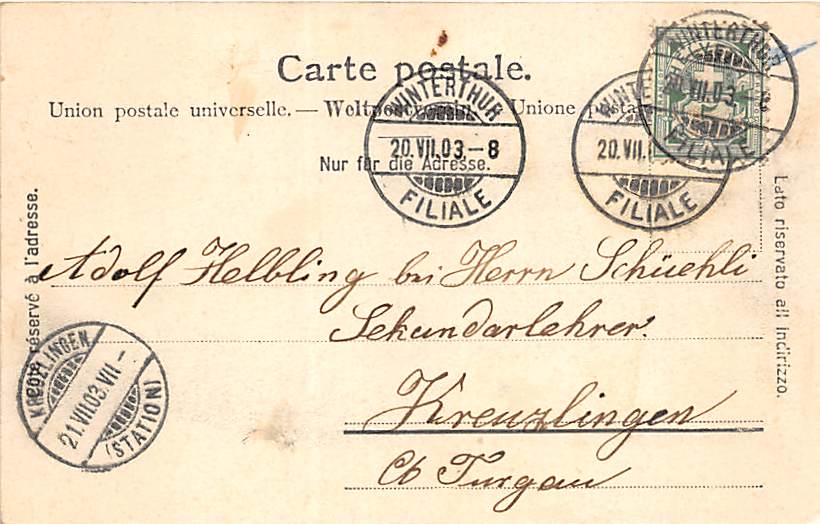 Carte postale.
Union postale universelle. — Weltpostverein. — Unione posta
Nur für die Adresse.
WINTERTHUR
20.VII.03.–8
FILIALE
WINTERTHUR
20.VII.
FILIALE
WINTERTHUR
20.VII.03.–8
FILIALE
Côté réservé à l'adresse.
Lato riservato all' indirizzo.
Adolf Helbling bei Herrn Schüehli
Sekundarlehrer.
Kreuzlingen
Ct Turgau
KREUZLINGEN
21.VII.03.VII–
(STATION)